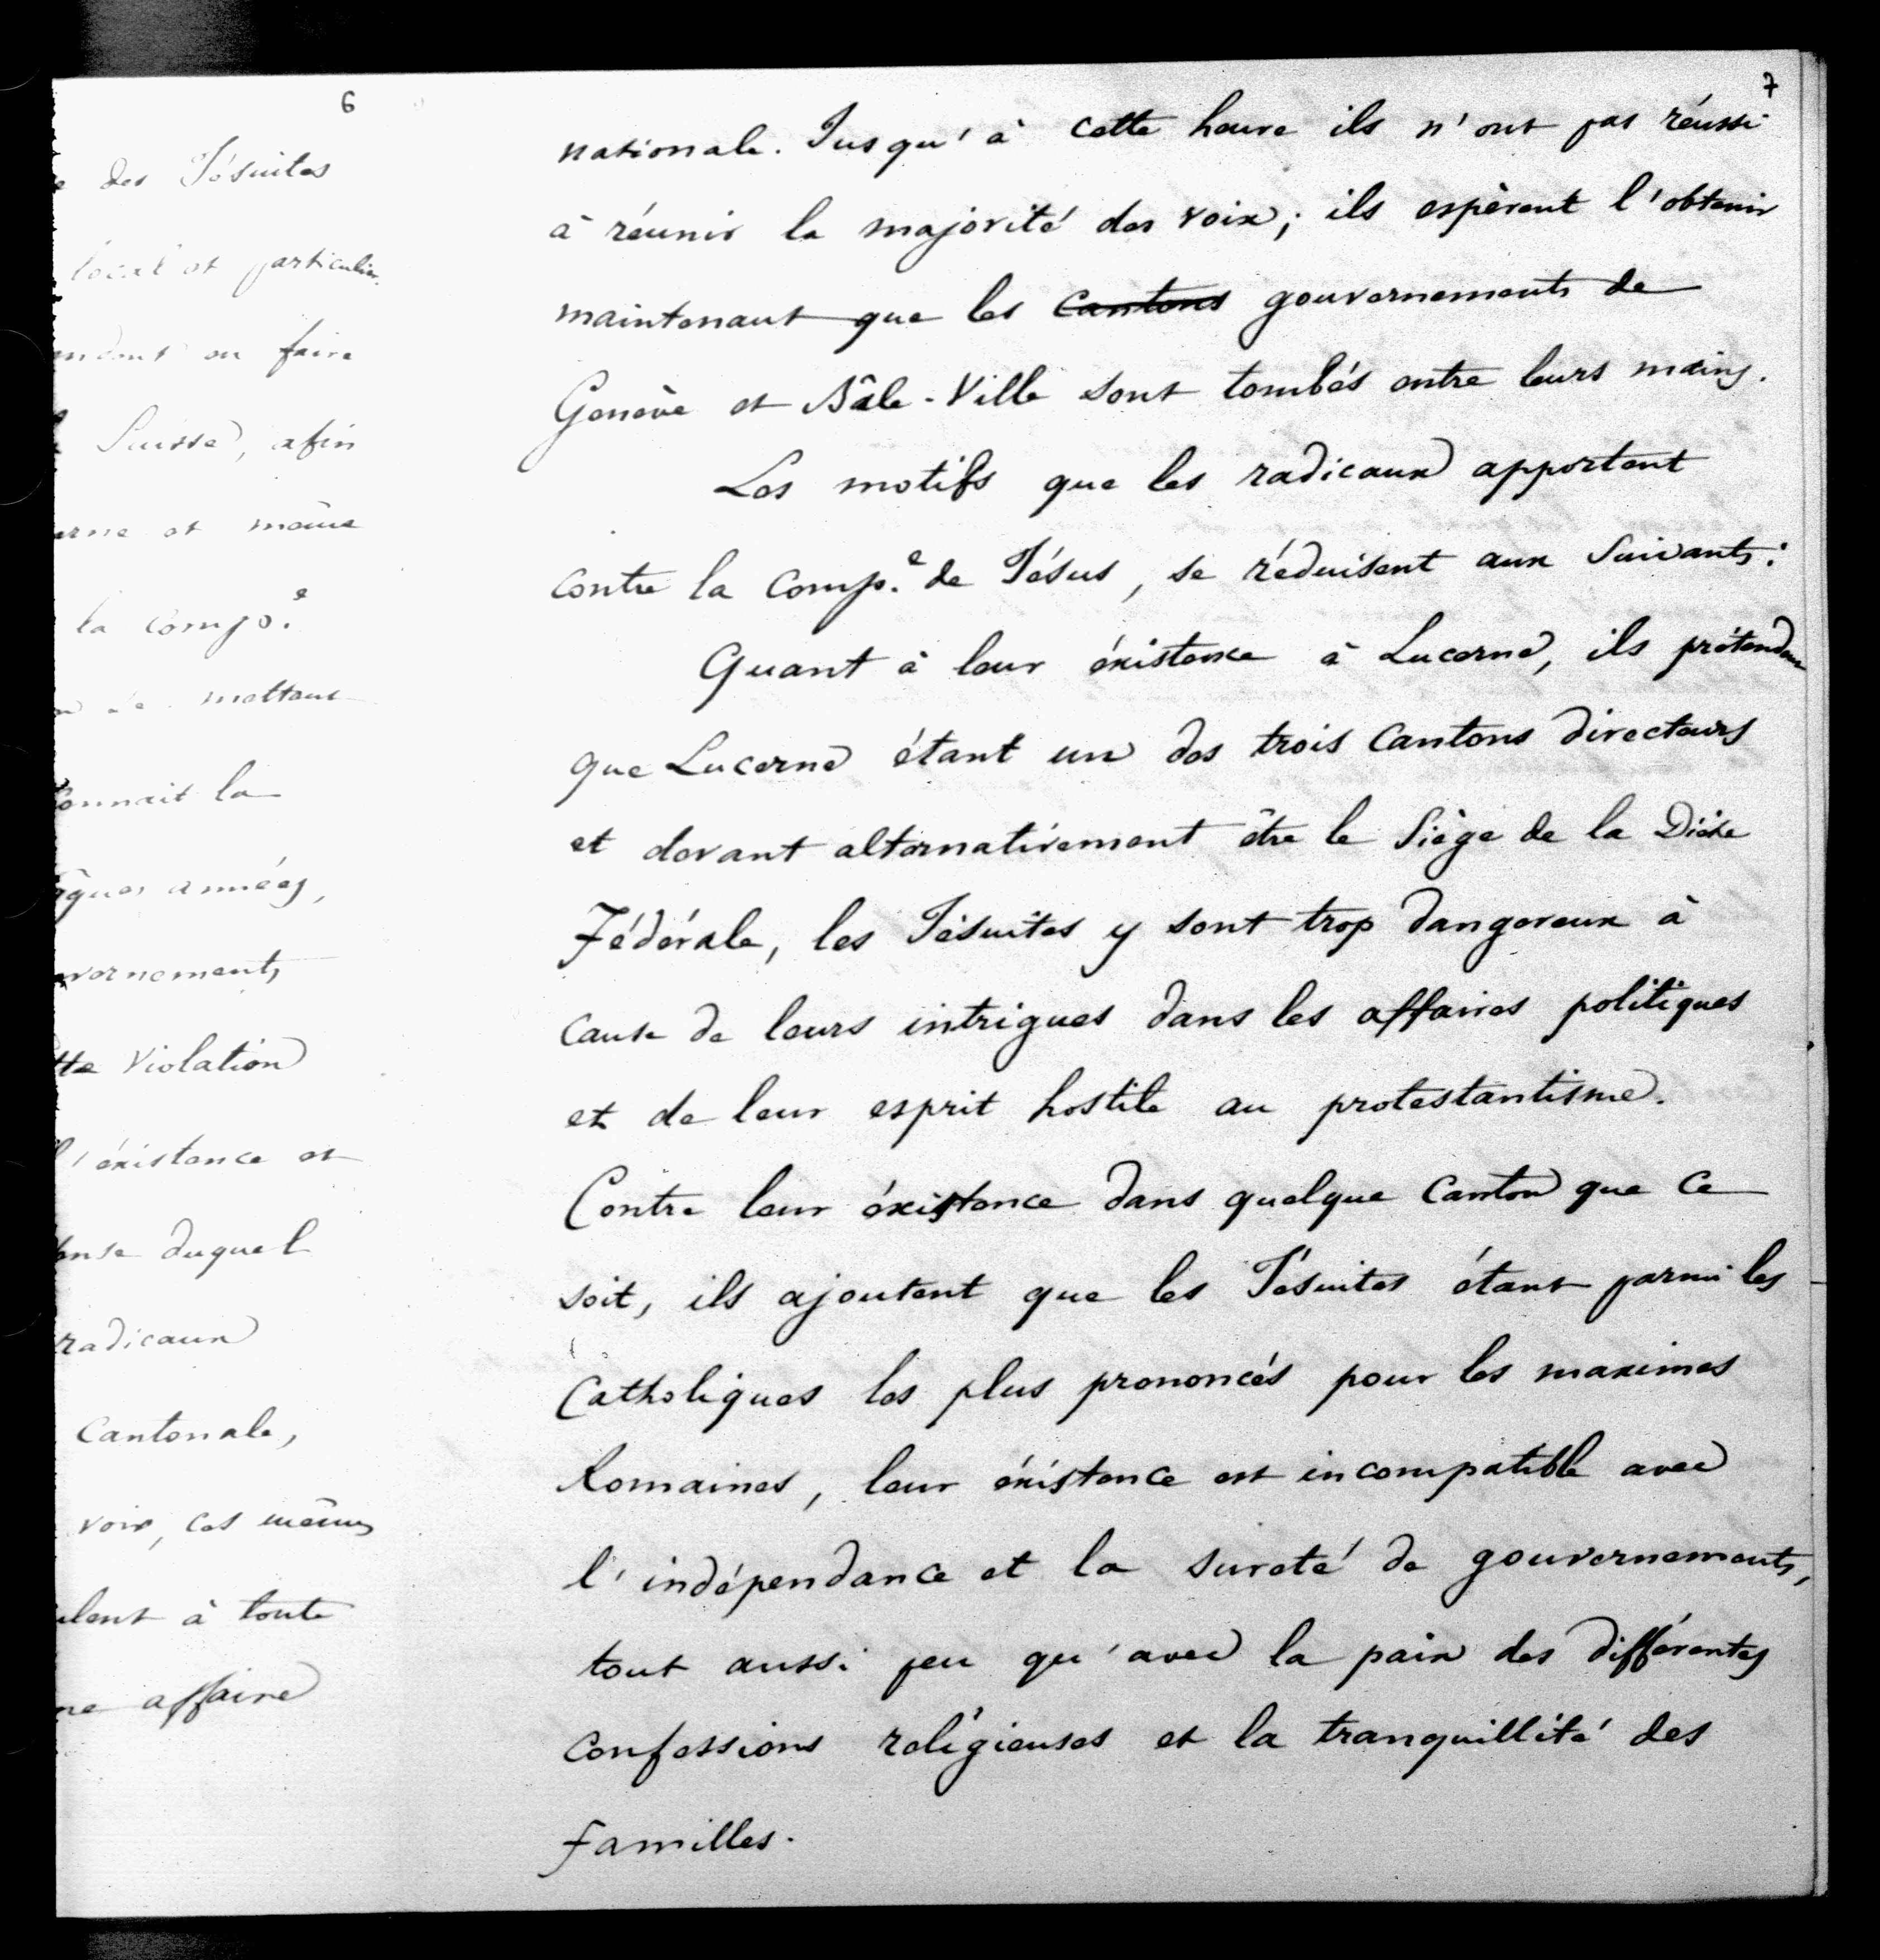 6
des Jésuites
local et particulier.
en faire
Suisse, afin
et même
la Comp.e
mettant
la
années,
Violation
l'existence et
duquel
radicaux
Cantonale,
voix, ces mêmes
à toute
affaire
7
nationale. Jusqu'à cette heure ils n'ont pas réussi
à réunir la majorité des voix; ils espèrent l'obtenir
maintenant que les Cantons gouvernements de
Genève et Bâle-Ville sont tombés entre leurs mains.
Les motifs que les radicaux apportent
contre la Comp.e de Jésus, se réduisent aux Suivants:
Quant à leur éxistence à Lucerne, ils prétendent
que Lucerne étant un des trois Cantons directeurs
et devant alternativement être le Siège de la Diète
Fédérale, les Jésuites y sont trop dangereux à
cause de leurs intrigues dans les affaires politiques
et de leur esprit hostile au protestantisme.
Contre leur éxistence dans quelque Canton que ce
soit, ils ajoutent que les Jésuites étant parmi les
Catholiques les plus prononcés pour les maximes
Romaines, leur éxistence est incompatible avec
l'indépendance et la sureté de gouvernements,
tout aussi peu qu'avec la paix des différentes
confessions religieuses et la tranquillité des
familles.